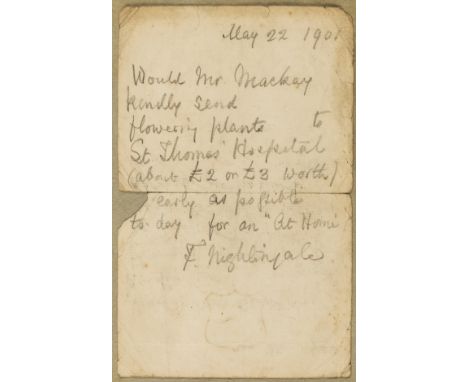 May 22 190
Would Mr. Mackay
kindly send
flowering plants to
St Thomas' Hospital
(about £2 or £3 worth)
early as possible
to day for an "At Home
F. Nightingale